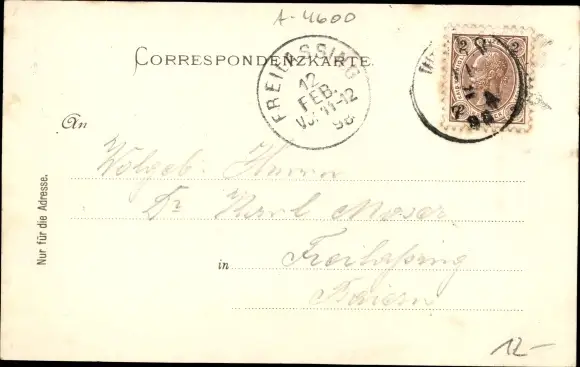 A-4600
CORRESPONDENZKARTE.
2 2
FREILASSING
12
FEB.
Vor. 11-12
98
An
Wolgeb. Herrn
Dr Karl Moser
in Freilassing
Baiern
Nur für die Adresse.
12-